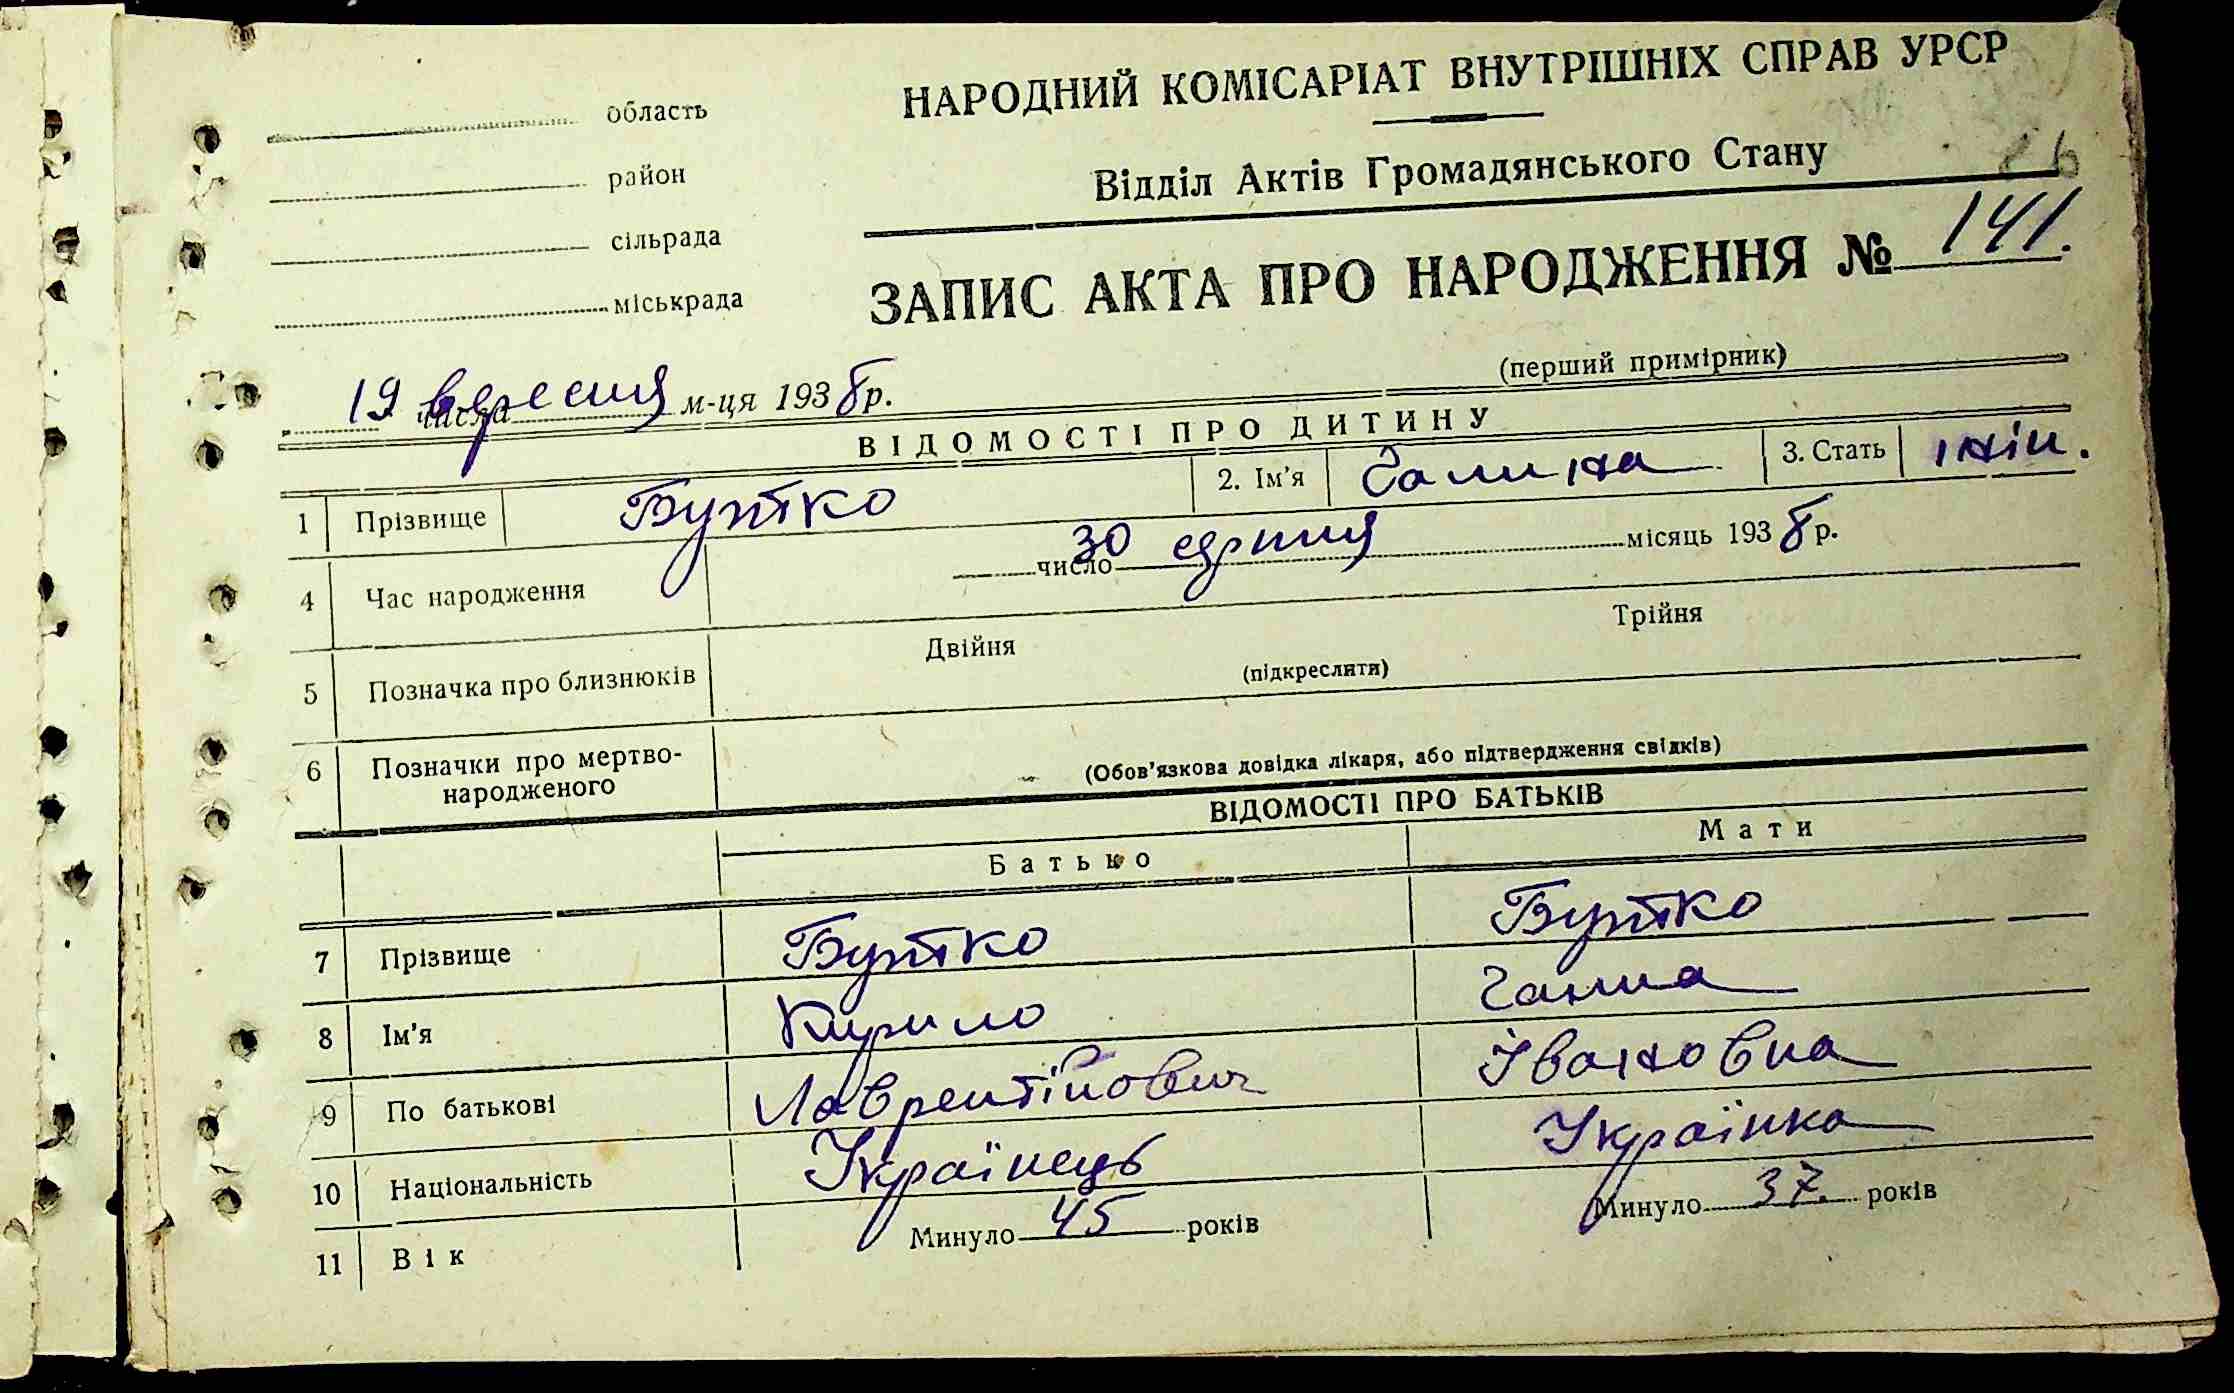 область
район
сільрада
міськрада
НАРОДНИЙ КОМІСАРІАТ ВНУТРІШНІХ СПРАВ УРСР
Відділ Актів Громадянського Стану
ЗАПИС АКТА ПРО НАРОДЖЕННЯ № 141.
(перший примірник)
19 числа вересня м-ця 1938р.
ВІДОМОСТІ ПРО ДИТИНУ
1 Прізвище Бутко 2. Ім'я Галина 3. Стать жін.
4 Час народження 30 число серпня місяць 1938р.
5 Позначка про близнюків Двійня Трійня
(підкреслити)
6 Позначки про мертво-
народженого
(Обов'язкова довідка лікаря, або підтвердження свідків)
ВІДОМОСТІ ПРО БАТЬКІВ
Батько Мати
7 Прізвище Бутко Бутко
8 Ім'я Кирило Ганна
9 По батькові Лаврентійович Івановна
10 Національність Українець Українка
11 Вік Минуло 45 років Минуло 37. років